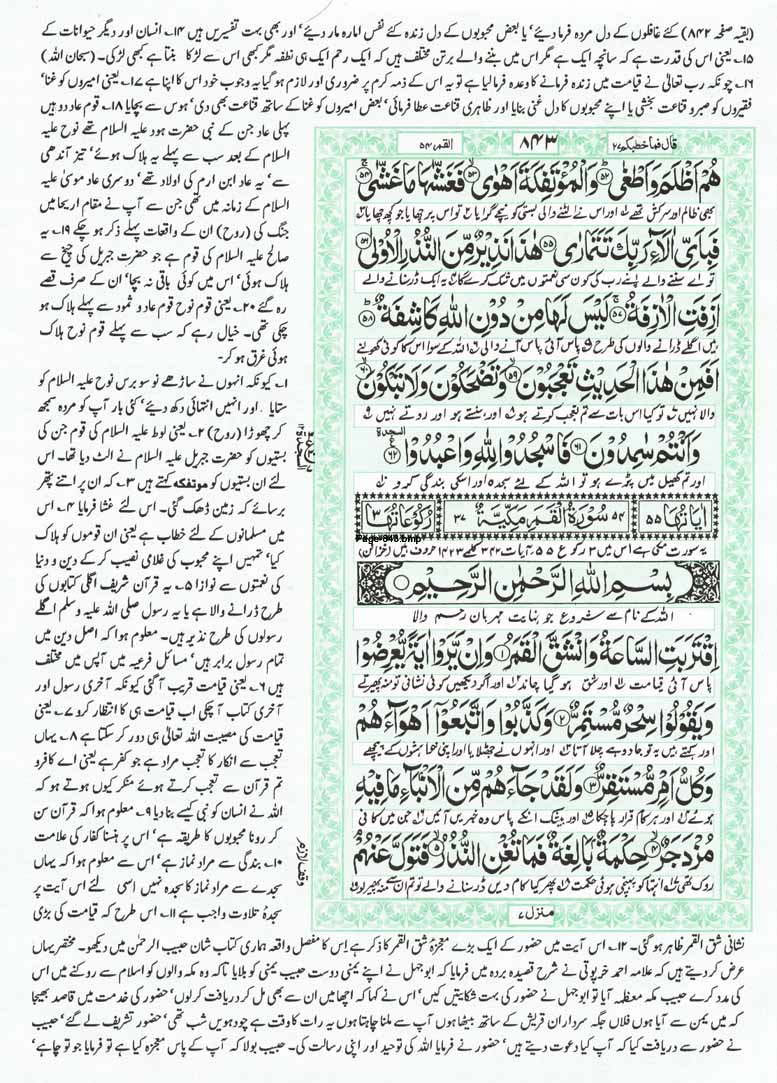 (بقیہ صفحہ ۸۴۲) کئے غافلوں کے دل مردہ فرما دیئے' یا بعض محبوبوں کے دل زندہ کئے نفس امارہ مار دیئے' اور بھی بہت تفسیریں ہیں ۱۴۔ انسان اور دیگر حیوانات کے
۱۵۔ یعنی اس کی قدرت ہے کہ سانچہ ایک ہے مگر اس میں بننے والے برتن مختلف ہیں کہ ایک رحم ایک ہی نطفہ مگر کبھی اس سے لڑکا بنتا ہے کبھی لڑکی۔ (سبحان اللہ)
۱۶۔ چونکہ رب تعالیٰ نے قیامت میں زندہ فرمانے کا وعدہ فرما لیا ہے تو یہ اس کے ذمہ کرم پر ضروری اور لازم ہو گیا یہ وجوب خود اس کا اپنا ہے ۱۷۔ یعنی امیروں کو غنا'
فقیروں کو صبر و قناعت بخشی یا اپنے محبوبوں کا دل غنی بنایا اور ظاہری قناعت عطا فرمائی' بعض امیروں کو غنا کے ساتھ قناعت بھی دی' ہوس سے بچایا ۱۸۔ قوم عاد دو ہیں
پہلی عاد جن کے نبی حضرت ہود علیہ السلام تھے نوح علیہ
السلام کے بعد سب سے پہلے یہ ہلاک ہوئے' تیز آندھی
سے' یہ عاد ابن ارم کی اولاد تھے' دوسری عاد موسیٰ علیہ
السلام کے زمانہ میں تھی جن سے آپ نے مقام اریحا میں
جنگ کی (روح) ان کے واقعات پہلے ذکر ہو چکے ۱۹۔ یہ
صالح علیہ السلام کی قوم ہے جو حضرت جبریل کی چیخ سے
ہلاک ہوئی' اس میں کوئی باقی نہ بچا' ان کے صرف قصے
رہ گئے ۲۰۔ یعنی قوم نوح قوم عاد و ثمود سے پہلے ہلاک ہو
چکی تھی۔ خیال رہے کہ سب سے پہلے قوم نوح ہلاک
ہوئی غرق ہو کر۔
۱۔ کیونکہ انہوں نے ساڑھے نو سو برس نوح علیہ السلام کو
ستایا اور انہیں انتہائی دکھ دیئے' کئی بار آپ کو مردہ سمجھ
کر چھوڑا (روح) ۲۔ یعنی لوط علیہ السلام کی قوم جن کی
بستیوں کو حضرت جبریل علیہ السلام نے الٹ دیا تھا۔ اس
لئے ان بستیوں کو موتفکہ کہتے ہیں ۳۔ کہ ان پر اتنے پتھر
برسائے کہ زمین ڈھک گئی۔ اس لئے غشا فرمایا ۴۔ اس
میں مسلمانوں کے لئے خطاب ہے یعنی ان قوموں کو ہلاک
کیا' تمہیں اپنے محبوب کی غلامی نصیب کر کے دین و دنیا
کی نعمتوں سے نوازا ۵۔ یہ قرآن شریف اگلی کتابوں کی
طرح ڈرانے والا ہے یا یہ رسول صلی اللہ علیہ وسلم اگلے
رسولوں کی طرح نذیر ہیں۔ معلوم ہوا کہ اصل دین میں
تمام رسول برابر ہیں' مسائل فرعیہ میں آپس میں مختلف
ہیں ۶۔ یعنی قیامت قریب آ گئی کیونکہ آخری رسول اور
آخری کتاب آ چکی اب قیامت ہی کا انتظار کرو ۷۔ یعنی
قیامت کی مصیبت اللہ تعالیٰ ہی دور کر سکتا ہے ۸۔ یہاں
تعجب سے انکار کا تعجب مراد ہے جو کفر ہے یعنی اے کافرو
تم قرآن سے تعجب کرتے ہوئے منکر کیوں ہوتے ہو کہ
اللہ نے انسان کو نبی کیسے بنا دیا ۹۔ معلوم ہوا کہ قرآن سن
کر رونا محبوبوں کا طریقہ ہے' اس پر ہنسنا کفار کی علامت
۱۰۔ بندگی سے مراد نماز ہے' اس سے معلوم ہوا کہ یہاں
سجدے سے مراد نماز کا سجدہ نہیں اسی لئے اس آیت پر
سجدۂ تلاوت واجب ہے ۱۱۔ اس طرح کہ قیامت کی بڑی
قال فما خطبکم ۲۷
۸۴۳
القمر ۵۴
هُمْ اَظْلَمَ وَاَطْغٰى ﴿۵۲﴾ وَالْمُؤْتَفِكَةَ اَهْوٰى ﴿۵۳﴾ فَغَشّٰىهَا مَا غَشّٰى ﴿۵۴﴾
بھی ظالم اور سرکش تھے اور اس نے الٹنے والی بستی کو نیچے گرایا تو اس پر چھایا جو کچھ چھایا
فَبِاَيِّ اٰلَآءِ رَبِّكَ تَتَمَارٰى ﴿۵۵﴾ هٰذَا نَذِيْرٌ مِّنَ النُّذُرِ الْاُوْلٰى ﴿۵۶﴾
تو اے سننے والے اپنے رب کی کون سی نعمتوں میں شک کرے گا یہ ایک ڈر سنانے والے
اَزِفَتِ الْاٰزِفَةُ ﴿۵۷﴾ لَيْسَ لَهَا مِنْ دُوْنِ اللّٰهِ كَاشِفَةٌ ﴿۵۸﴾
ہیں اگلے ڈرانے والوں کی طرح پاس آئی پاس آنے والی اللہ کے سوا اس کا کوئی کھولنے
اَفَمِنْ هٰذَا الْحَدِيْثِ تَعْجَبُوْنَ ﴿۵۹﴾ وَتَضْحَكُوْنَ وَلَا تَبْكُوْنَ ﴿۶۰﴾
والا نہیں تو کیا اس بات سے تم تعجب کرتے ہو اور ہنستے ہو اور روتے نہیں
وَاَنْتُمْ سٰمِدُوْنَ ﴿۶۱﴾ فَاسْجُدُوْا لِلّٰهِ وَاعْبُدُوْا ﴿۶۲﴾
السجدة
اور تم کھیل میں پڑے ہو تو اللہ کے لئے سجدہ اور اسکی بندگی کرو
اٰيَاتُهَا ۵۵ ۵۴ سُوْرَةُ الْقَمَرِ مَكِّيَّةٌ ۳۷ رُكُوْعَاتُهَا ۳
Page-843.bmp
یہ سورت مکی ہے اس میں ۳ رکوع ۵۵ آیات ۳۴۲ کلمے ۱۴۲۳ حروف ہیں (خزائن)
بِسْمِ اللّٰهِ الرَّحْمٰنِ الرَّحِيْمِ
اللہ کے نام سے شروع جو نہایت مہربان رحم والا
اِقْتَرَبَتِ السَّاعَةُ وَانْشَقَّ الْقَمَرُ ﴿۱﴾ وَاِنْ يَّرَوْا اٰيَةً يُّعْرِضُوْا
پاس آئی قیامت اور شق ہو گیا چاند اور اگر دیکھیں کوئی نشانی تو منہ پھیرتے
وَيَقُوْلُوْا سِحْرٌ مُّسْتَمِرٌّ ﴿۲﴾ وَكَذَّبُوْا وَاتَّبَعُوْٓا اَهْوَآءَهُمْ
اور کہتے ہیں یہ تو جادو ہے چلا آتا اور انہوں نے جھٹلایا اور اپنی خواہشوں کے پیچھے
وَكُلُّ اَمْرٍ مُّسْتَقِرٌّ ﴿۳﴾ وَلَقَدْ جَآءَهُمْ مِّنَ الْاَنْۢبَآءِ مَا فِيْهِ
ہوئے اور ہر کام قرار پا چکا اور بیشک انکے پاس وہ خبریں آئیں جن میں کافی
مُزْدَجَرٌ ﴿۴﴾ حِكْمَةٌۢ بَالِغَةٌ فَمَا تُغْنِ النُّذُرُ ﴿۵﴾ فَتَوَلَّ عَنْهُمْ
روک تھی انتہا کو پہنچی ہوئی حکمت پھر کیا کام دیں ڈر سنانے والے تو تم ان سے منہ پھیر لو
منزل ۷
نشانی شق القمر ظاہر ہو گئی۔ ۱۲۔ اس آیت میں حضور کے ایک بڑے معجزۂ شق القمر کا ذکر ہے اس کا مفصل واقعہ ہماری کتاب شان حبیب الرحمٰن میں دیکھو۔ مختصر یہاں
عرض کر دیتے ہیں کہ علامہ احمد خرپوتی نے شرح قصیدہ بردہ میں فرمایا کہ ابو جہل نے اپنے یمنی دوست حبیب یمنی کو بلایا تاکہ وہ مکہ والوں کو اسلام سے روکنے میں اس
کی مدد کرے حبیب مکہ معظمہ آیا تو ابو جہل نے حضور کی بہت شکایتیں کیں' اس نے کہا کہ اچھا میں ان سے بھی مل کر دریافت کر لوں' حضور کی خدمت میں قاصد بھیجا
کہ میں یمن سے آیا ہوں فلاں جگہ سرداران قریش کے ساتھ بیٹھا ہوں آپ سے ملنا چاہتا ہوں یہ رات کا وقت ہے چودہویں شب تھی' حضور تشریف لے گئے' حبیب
نے حضور سے دریافت کیا کہ آپ کیا دعوت دیتے ہیں' حضور نے فرمایا اللہ کی توحید اور اپنی رسالت کی۔ حبیب بولا کہ آپ کے پاس معجزہ کیا ہے تو فرمایا جو تو چاہے'